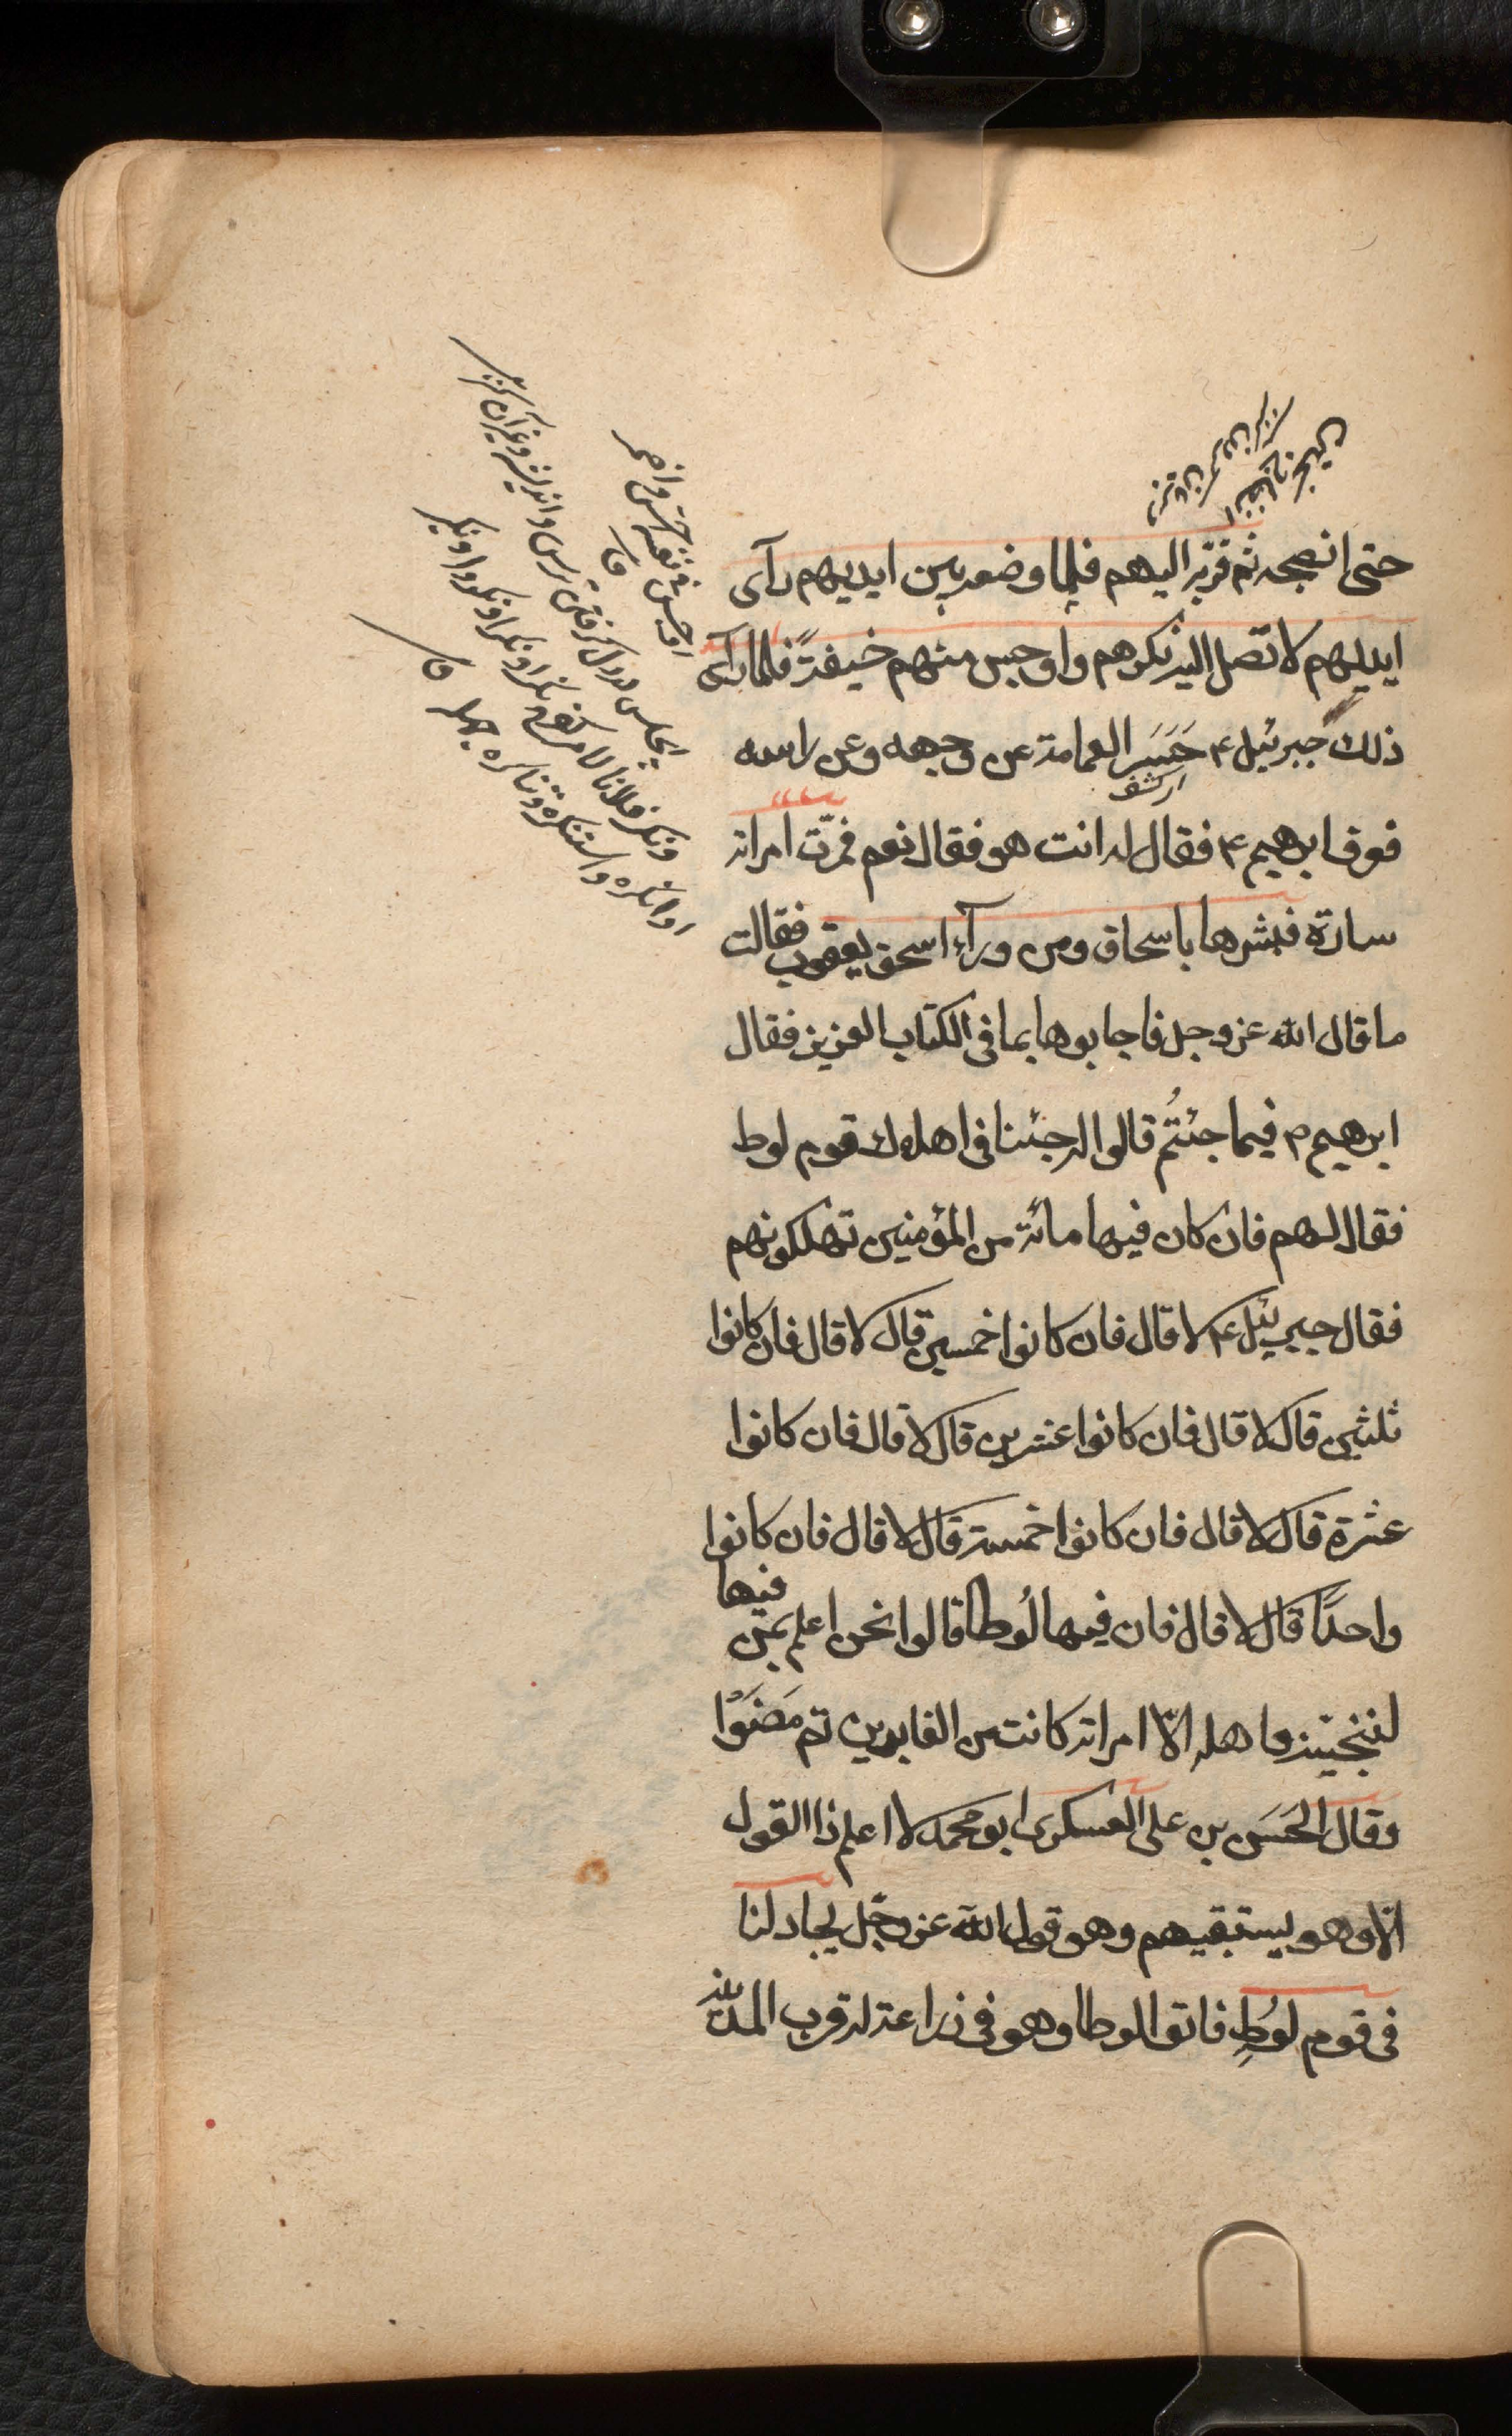 حتى انضجه ثم قرّبه اليهم فلما وضعه بين ايديهم رآى
ايديهم لا تصل اليه نكرهم واوجس منهم خيفةً فلما رآى
ذلك جبرئيل ع حَسَرَ العمامة عن وجهه وعن راسه
اى كشف
فعرفه ابرهيم ع فقال له انت هو فقال نعم فمرّت امراته
سارة فبشرها باسحاق ومن ورآء اسحق يعقوب فقالت
ما قال الله عز وجل فاجابوها بما فى الكتاب العزيز فقال
ابرهيم ع فيما جئتُم قالوا له جئنا فى اهلاك قوم لوط
فقال لهم فان كان فيها مائة من المؤمنين تهلكونهم
فقال جبرئيل ع لا قال فان كانوا خمسين قال لا قال فان كانوا
ثلثين قال لا قال فان كانوا عشرين قال لا قال فان كانوا
عشرة قال لا قال فان كانوا خمسة قال لا قال فان كانوا
واحدًا قال لا قال فان فيها لُوطا قالوا نحن اعلم بمن فيها
لننجينه واهله الّا امراته كانت من الغابرين ثم مَضَوْا
وقال الحَسَن بن على العسكرى ابو محمد لا اعلم ذا القول
الّا وهو يستبقيهم وهو قول الله عز وجل يجادلنا
فى قوم لوُطٍ فاتوا لوطا وهو فى زراعة له قرب المدينة
اوجس فى نفسه
واضمر
ونكر فلانا الامر كفرح نكرا
وانكره واستنكره وتناكره جهله ق